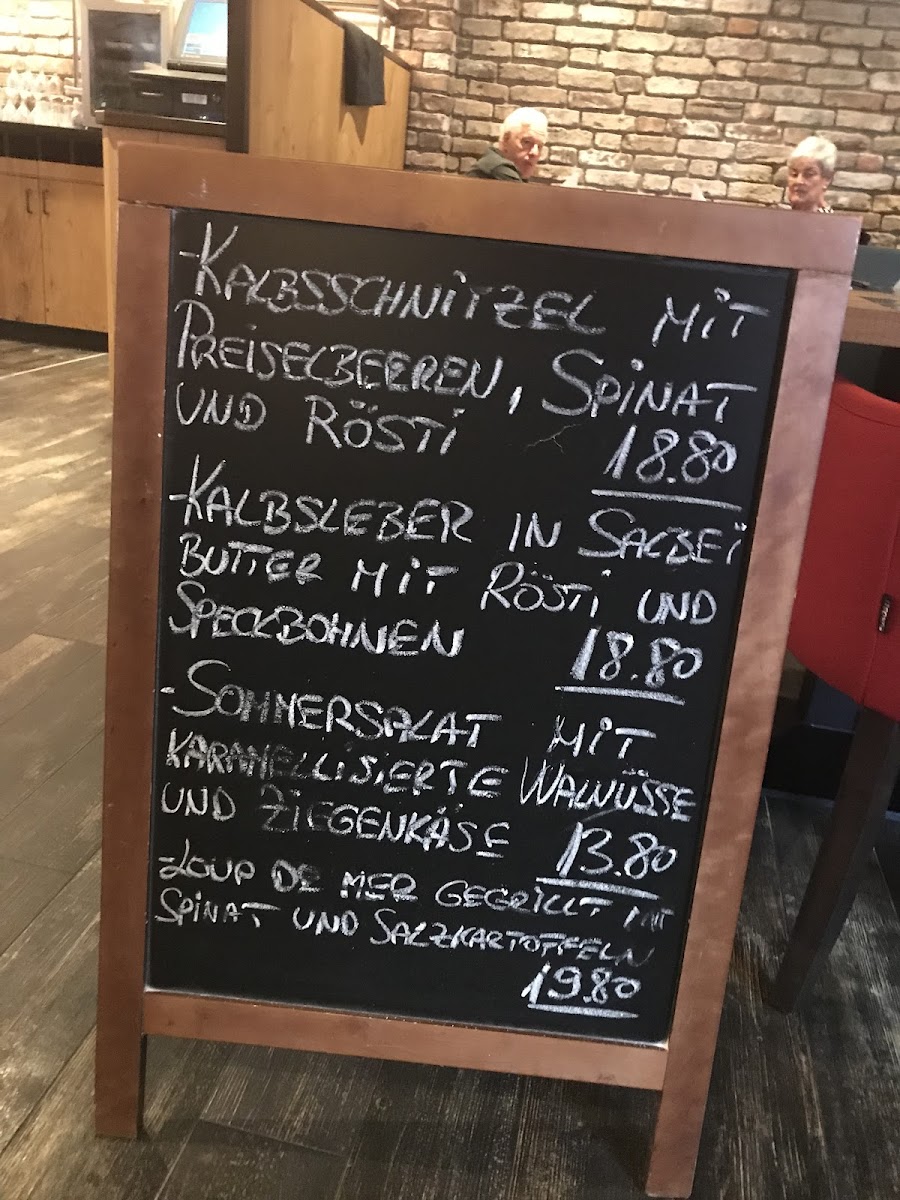 -KALBSSCHNITZEL MIT
PREISELBEEREN, SPINAT
UND RÖSTI 18.80
-KALBSLEBER IN SALBEI
BUTTER MIT RÖSTI UND
SPECKBOHNEN 18.80
-SOMMERSALAT MIT
KARAMELLISIERTE WALNÜSSE
UND ZIEGENKÄSE 13.80
-LOUP DE MER GEGRILLT MIT
SPINAT UND SALZKARTOFFELN
19.80